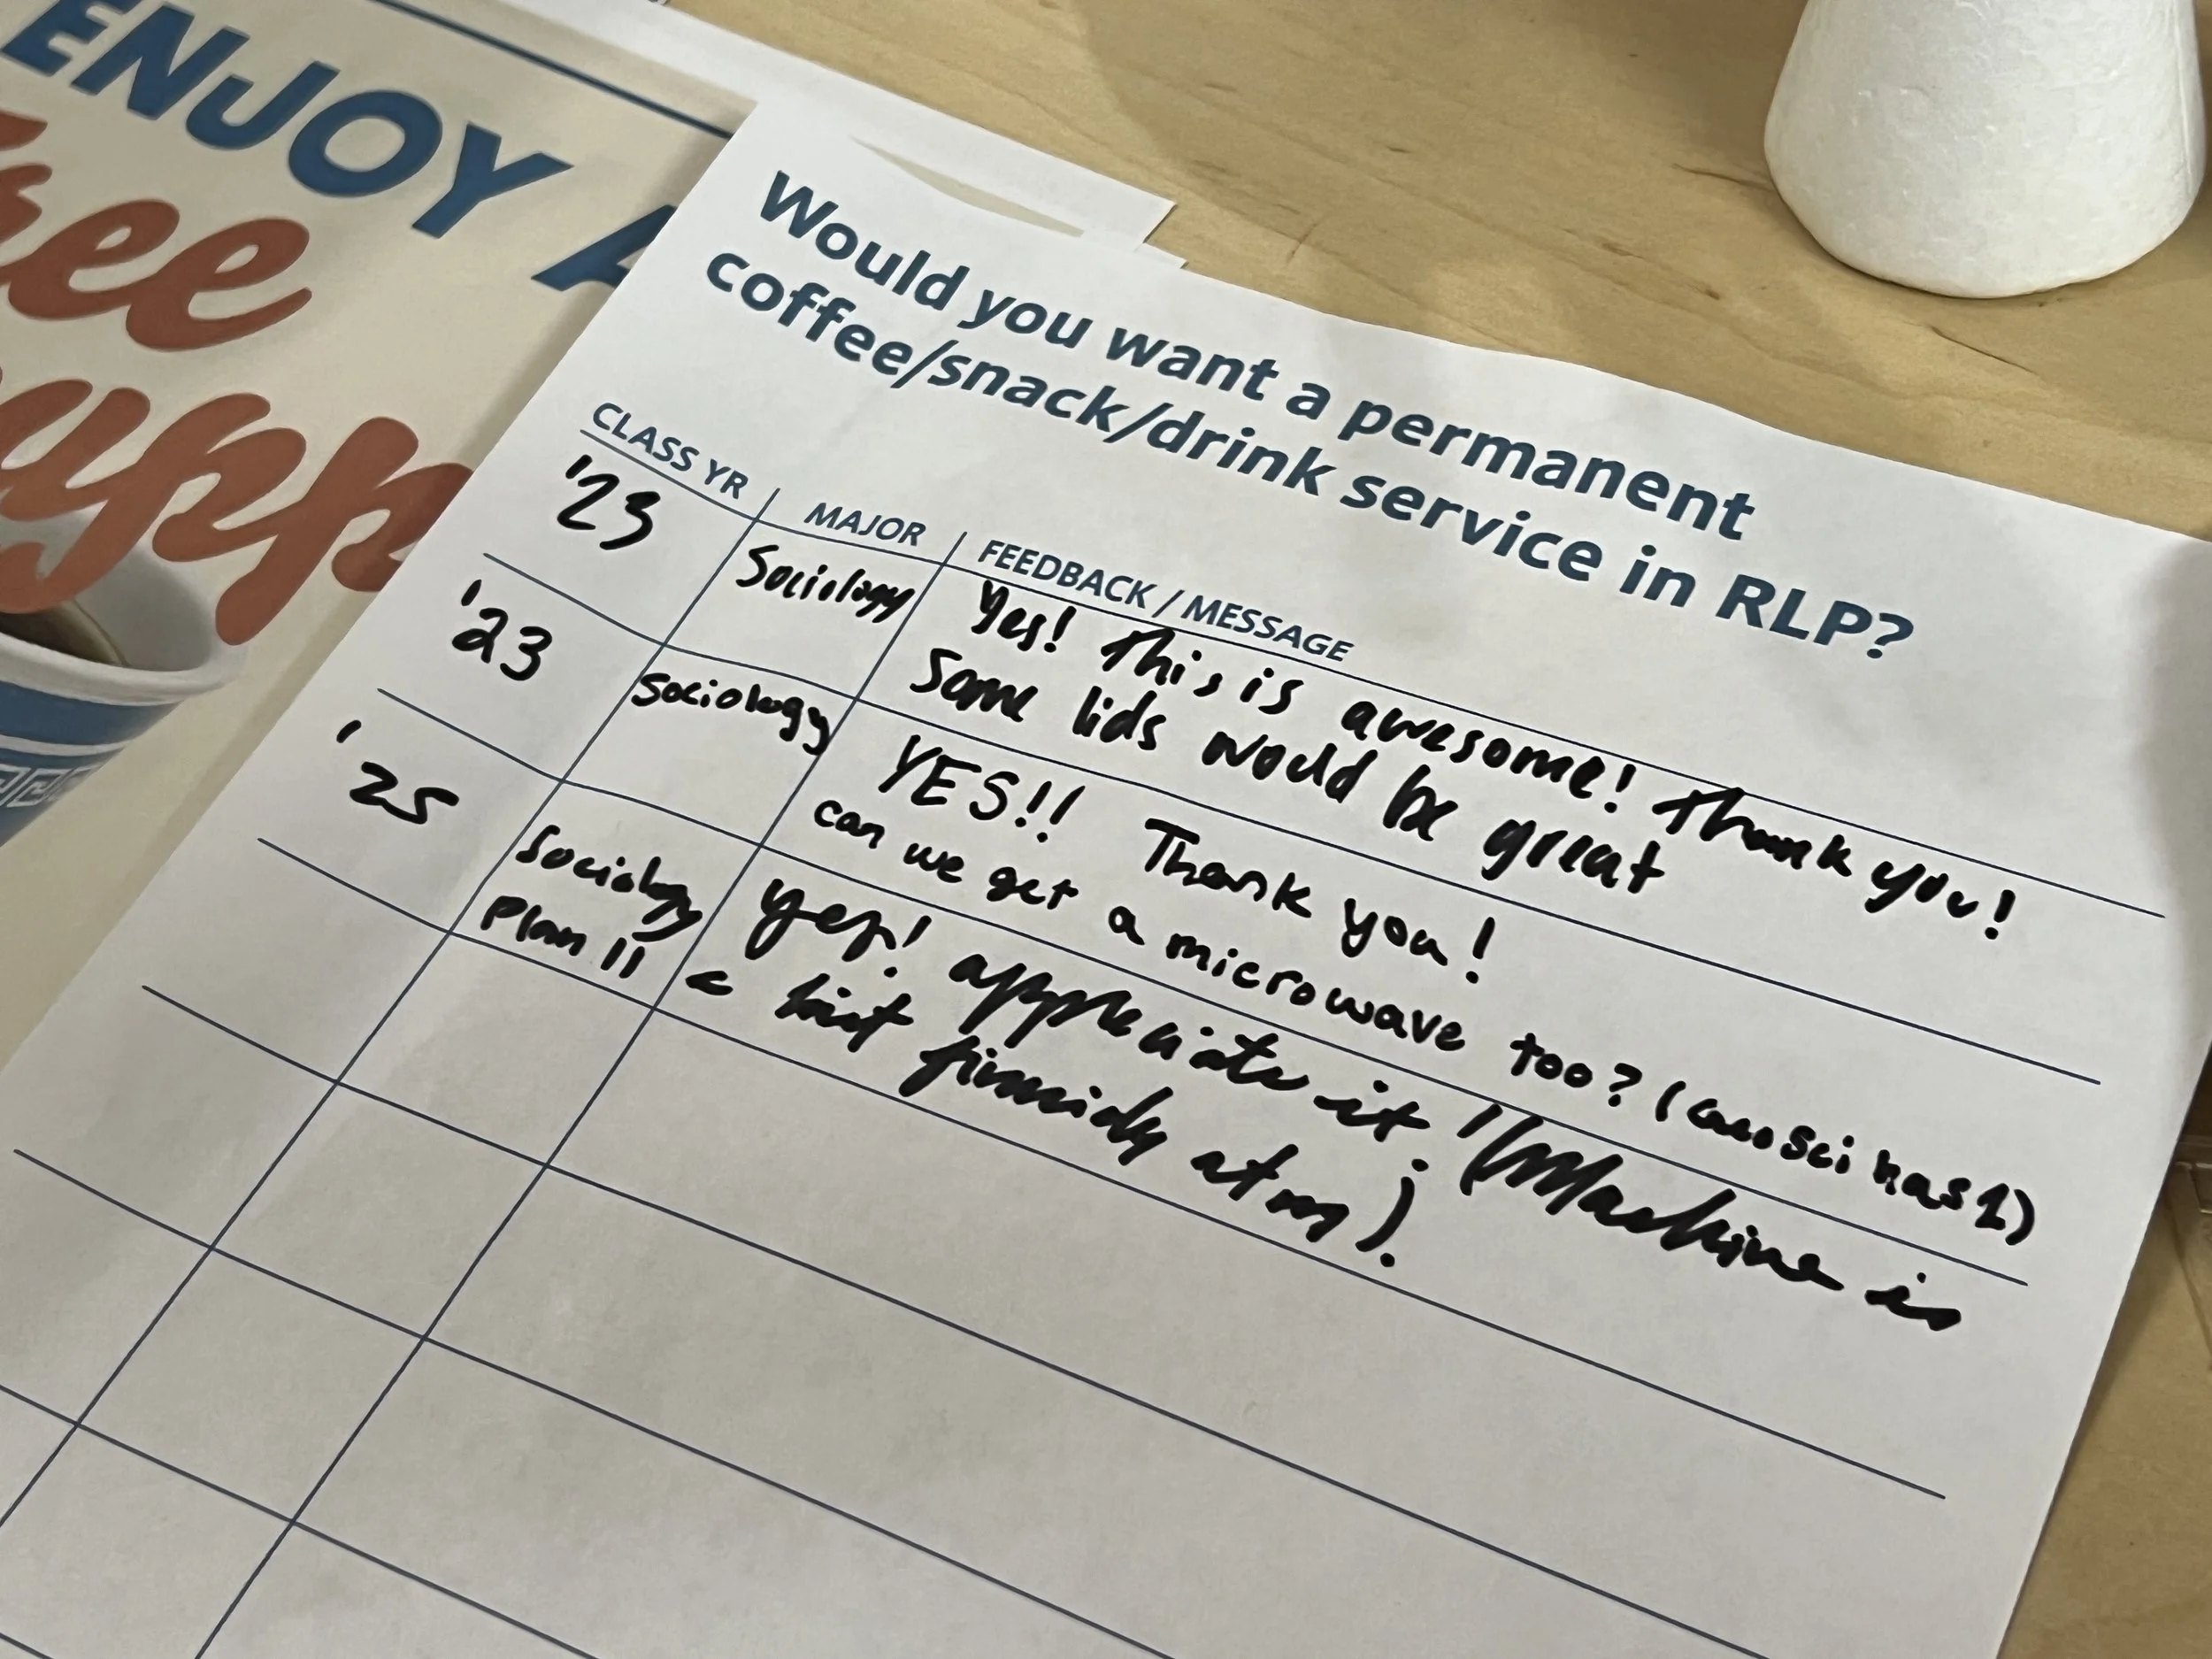 ENJOY A
ree
upp
Would you want a permanent
coffee/snack/drink service in RLP?
CLASS YR MAJOR FEEDBACK / MESSAGE
'23 Sociology Yes! This is awesome! Thank you!
Some lids would be great
'23 Sociology YES!! Thank you!
can we get a microwave too? ( has 1)
'25 Sociology yep! appreciate it! (Machine is
Plan II a bit finnicky atm).